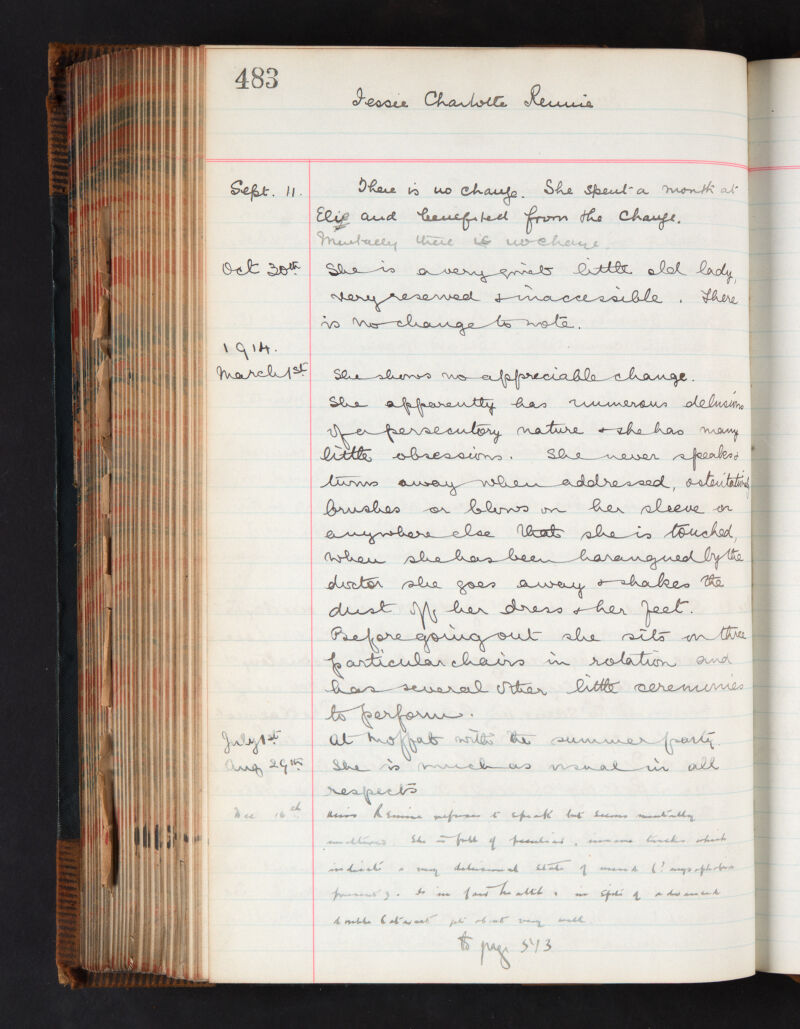 483
Jessie Charlotte Rennie
Sept. 11. There is no change. She spent a month at
Elie and benefited from the change.
Mentally there is no change.
Oct 30th She is a very quiet little old lady,
very reserved & inaccessible. There
is no change to note.
1914.
March 1st She shows no appreciable change.
She apparently has numerous delusions
of a persecutory nature & she has many
little obsessions. She never speaks &
turns away when addressed, ostentatiously
brushes or blows on her sleeve or
anywhere else that she is touched,
when she has been harangued by the
doctor she goes away & shakes the
dust off her dress & her feet.
Before going out she sits on three
particular chairs in rotation and
has several other little ceremonies
to perform.
July 1st At Moffat with the summer party.
Aug 29th She is much as usual in all
respects
Dec 16th Miss Rennie refuses to speak but seems mentally
unaltered. She is full of peculiar, insane tricks which
indicate a very delusional state of mind (? mysophobia
present). Is in fair health & in spite of advanced
double Cataract gets about very well
to page 573